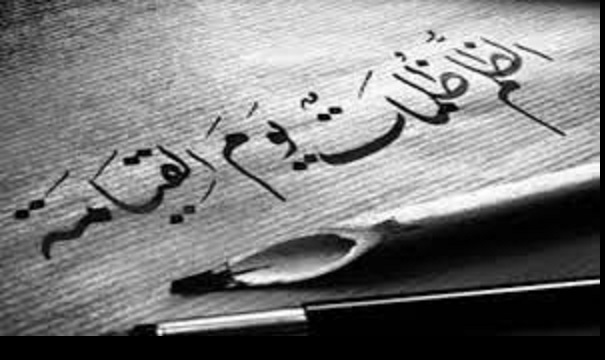 الظلم ظلمات يوم القيامة